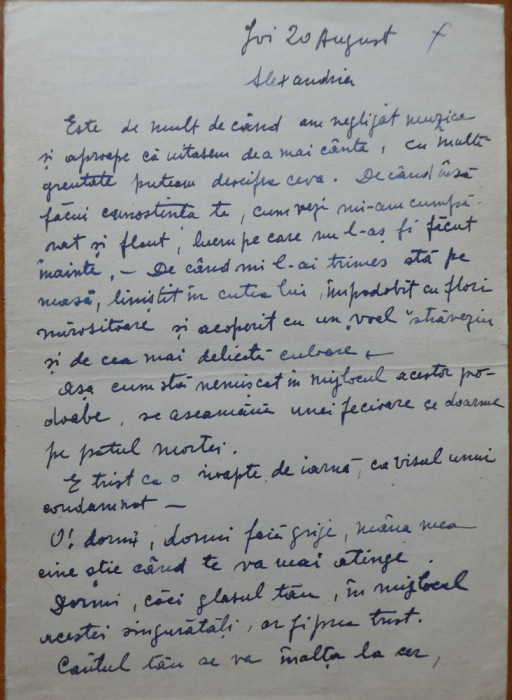 Joi 20 August
Alexandria
Este de mult de când am neglijat muzica
și aproape că uitasem de a mai cânte, cu multă
greutate puteam descifra ceva. De când însă
făcui cunostinta te, cum vezi mi-am cumpă-
rat și flaut, lucru pe care nu l-aș fi făcut
înainte, – De când mi l-ai trimes stă pe
masă, liniștit în cutia lui, împodobit cu flori
mirositoare și acoperit cu un „voel" străveziu
și de cea mai delicată culoare –
Așa cum stă nemișcat în mijlocul acestor po-
doabe, se aseamănă unei fecioare ce doarme
pe patul mortei.
E trist ca o noapte de iarnă, ca visul unui
condamnat –
O! dormi, dormi fără grije, mâna mea
cine știe când te va mai atinge.
Dormi, căci glasul tău, în mijlocul
acestei singurătăți, ar fi prea trist.
Cântul tău se va înalța la cer,